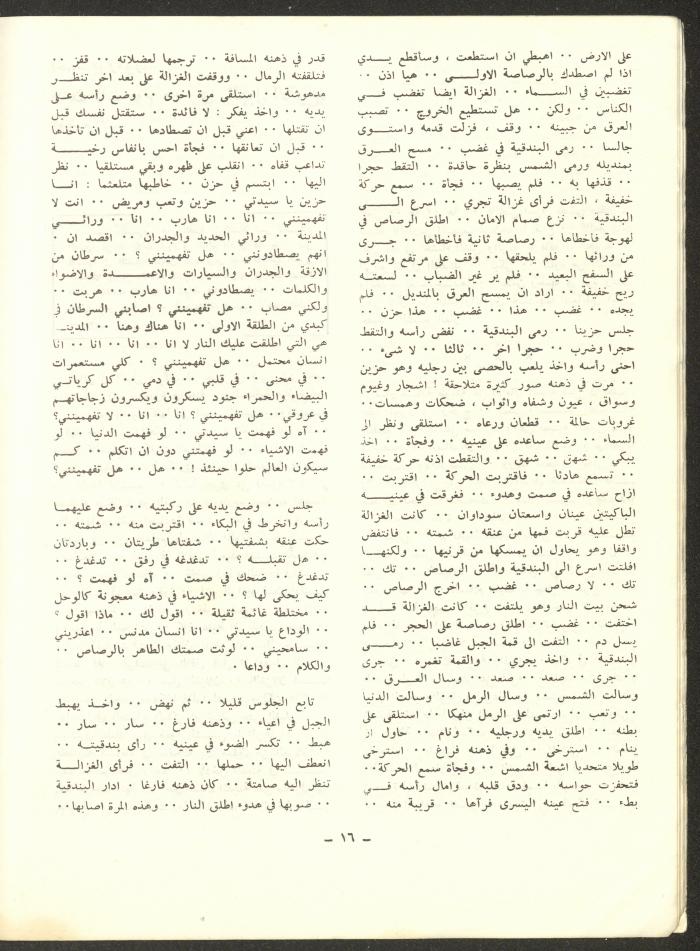 على الارض ·· اهبطي ان استطعت ، وسأقطع يـــدي
اذا لم اصطدك بالرصاصة الاولــــى ·· هيا اذن ··
تغضبين في الســـماء ·· الغزالة ايضا تغضب فـــي
الكناس ·· ولكن ·· هل تستطيع الخروج ·· تصبب
العرق من جبينه ·· وقف ، فزلت قدمه واستـــوى
جالسا ·· رمى البندقية في غضب ·· مسح العـــرق
بمنديله ورمى الشمس بنظرة حاقدة ·· التقط حجرا
·· قذفها به ·· فلم يصبها ·· فجأة ·· سمع حركة
خفيفة ، التفت فرأى غزالة تجري ·· اسرع الـــى
البندقية ·· نزع صمام الامان ·· اطلق الرصاص في
لهوجة فأخطاها ·· رصاصة ثانية فأخطاها ·· جـرى
من ورائها ·· فلم يلحقها ·· وقف على مرتفع واشرف
على السفح البعيد ·· فلم ير غير الضباب ·· لسعتـه
ريح خفيفة ·· اراد ان يمسح العرق بالمنديل ·· فلم
يجده ·· غضب ·· هذا ·· غضب ·· هذا حزن ··
جلس حزينا ·· رمى البندقية ·· نفض رأسه والتقط
حجرا وضرب ·· حجرا اخر ·· ثالثا ·· لا شيء ··
احنى رأسه واخذ يلعب بالحصى بين رجليه وهو حزين
·· مرت في ذهنه صور كثيرة متلاحقة ! اشجار وغيوم
وسواق ، عيون وشفاه واثواب ، ضحكات وهمسات··
غروبات حالمة ·· قطعان ورعاه ·· استلقى ونظر الى
السماء ·· وضع ساعده على عينيه ·· وفجأة ·· اخذ
يبكي ·· شهق ·· شهق ·· والتقطت اذنه حركة خفيفة
·· تسمع هادئا ·· فاقتربت الحركة ·· اقتربت ··
ازاح ساعده في صمت وهدوء ·· فغرقت في عينيـــه
الباكيتين عينان واسعتان سوداوان ·· كانت الغزالة
تطل عليه قربت فمها من عنقه ·· شمته ·· فانتفض
واقفا وهو يحاول ان يمسكها من قرنيها ·· ولكنهـــا
افلتت اسرع الى البندقية واطلق الرصاص ·· تك ··
تك ·· لا رصاص ·· غضب ·· اخرج الرصاص ··
شحن بيت النار وهو يلتفت ·· كانت الغزالة قـــد
اختفت ·· غضب ·· اطلق رصاصة على الحجر ·· فلم
يسل دم ·· التفت الى قمة الجبل غاضبا ·· رمـــى
البندقية ·· واخذ يجري ·· والقمة تغمره ·· جرى
·· جرى ·· صعد ·· صعد ·· وسال العـرق ··
وسالت الشمس ·· وسال الرمل ·· وسالت الدنيا
·· وتعب ·· ارتمى على الرمل منهكا ·· استلقى على
بطنه ·· اطلق يديه ورجليه ·· ونام ·· حاول ان
ينام ·· استرخى ·· وفي ذهنه فراغ ·· استرخى
طويلا متحديا اشعة الشمس ·· وفجأة سمع الحركة··
فتحفزت حواسه ·· ودق قلبه ، وامال رأسه فـــي
بطء ·· فتح عينه اليسرى فرآها ·· قريبة منه ··
قدر في ذهنه المسافة ·· ترجمها لعضلاته ·· قفز ··
فتلقفته الرمال ·· ووقفت الغزالة على بعد اخر تنظـر
مدهوشة ·· استلقى مرة اخرى ·· وضع رأسه علـى
يديه ·· واخذ يفكر : لا فائدة ·· ستقتل نفسك قبل
ان تقتلها ·· اعني قبل ان تصطادها ·· قبل ان تأخذها
·· قبل ان تعانقها ·· فجأة احس بانفاس رخيـــة
تداعب قفاه ·· انقلب على ظهره وبقي مستلقيا ·· نظر
اليها ·· ابتسم في حزن ·· خاطبها متلعثما : انـــا
حزين يا سيدتي ·· حزين وتعب ومريض ·· انت لا
تفهمينني ·· انا ·· انا هارب ·· انا ·· ورائـــي
المدينة ·· ورائي الحديد والجدران ·· اقصد ان ·
انهم يصطادونني ·· هل تفهمينني ؟ ·· سرطان من
الازفة والجدران والسيارات والاعمـــدة والاضواء
والكلمات ·· يصطادوني ·· انا هارب ·· هربت ··
ولكني مصاب ·· هل تفهمينني ؟ اصابني السرطان في
كبدي من الطلقة الاولى ·· انا هناك وهنا ·· المدينـة
هي التي اطلقت عليك النار لا انا ·· انا ·· انا ·· انا
انسان محتمل ·· هل تفهمينني ؟ · كلي مستعمرات
·· في محنى ·· في قلبي ·· في دمي ·· كل كرياتـي
البيضاء والحمراء جنود يسكرون ويكسرون زجاجاتهـم
في عروقي·· هل تفهمينني ؟ انا ·· انا ·· لا تفهمينني؟
·· آه لو فهمت يا سيدتي ·· لو فهمت الدنيا ·· لو
فهمت الاشياء ·· لو فهمتني دون ان اتكلم ·· كـــم
سيكون العالم حلوا حينئذ ! ·· هل ·· هل تفهمينني؟
جلس ·· وضع يديه على ركبتيه ·· وضع عليهمـا
رأسه وانخرط في البكاء ·· اقتربت منه ·· شمته ··
حكت عنقه بشفتيها ·· شفتاها طريتان ·· وباردتان
·· هل تقبلـــه ؟ ·· تدغدغه في رفق ·· تدغدغ ··
تدغدغ ·· ضحك في صمت ·· آه لو فهمت ؟ ··
كيف يحكى لها ؟ ·· الاشياء في ذهنه معجونة كالوحل
·· مختلطة غائمة ثقيلة ·· اقول لك ·· ماذا اقول ؟
·· الوداع يا سيدتي ·· انا انسان مدنس ·· اعذريني
·· سامحيني ·· لوثت صمتك الطاهر بالرصاص ··
والكلام ·· وداعا ·
تابع الجلوس قليلا ·· ثم نهض ·· واخـذ يهبط
الجبل في اعياء ·· وذهنه فارغ ·· سار ·· سار ··
هبط ·· تكسر الضوء في عينيه ·· رأى بندقيتـه ··
انعطف اليها ·· حملها ·· التفت ·· فرأى الغزالـــة
تنظر اليه صامتة ·· كان ذهنه فارغا · ادار البندقية
·· صوبها في هدوء اطلق النار ·· وهذه المرة اصابها··
– ١٦ –